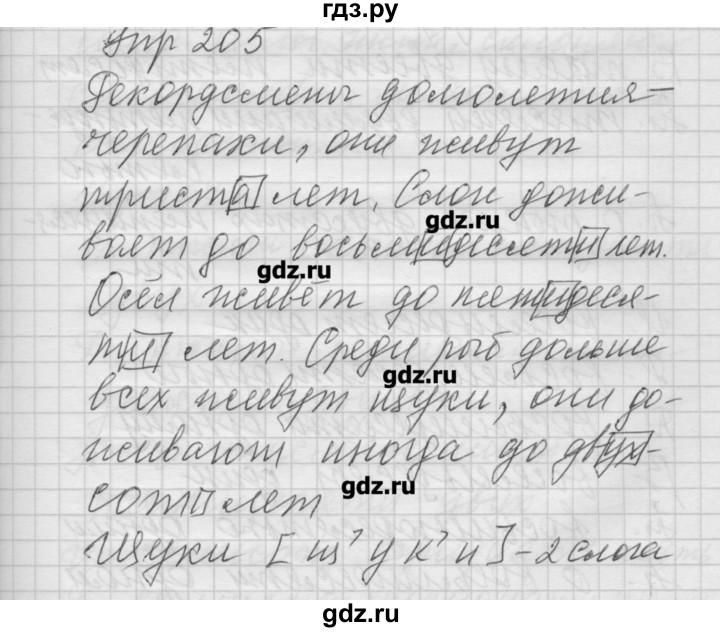 гдз.ру
Упр 205
Рекордсмены долголетия –
черепахи, они живут
триста лет. Слон дожи-
вает до восьмидесяти лет.
gdz.ru
gdz.ru
Осёл живёт до пятидеся-
ти лет. Среди рыб дольше
gdz.ru
всех живут щуки, они до-
живают иногда до двух-
сот лет
gdz.ru
Щуки [щ'ук'и] – 2 слога
gdz.ru